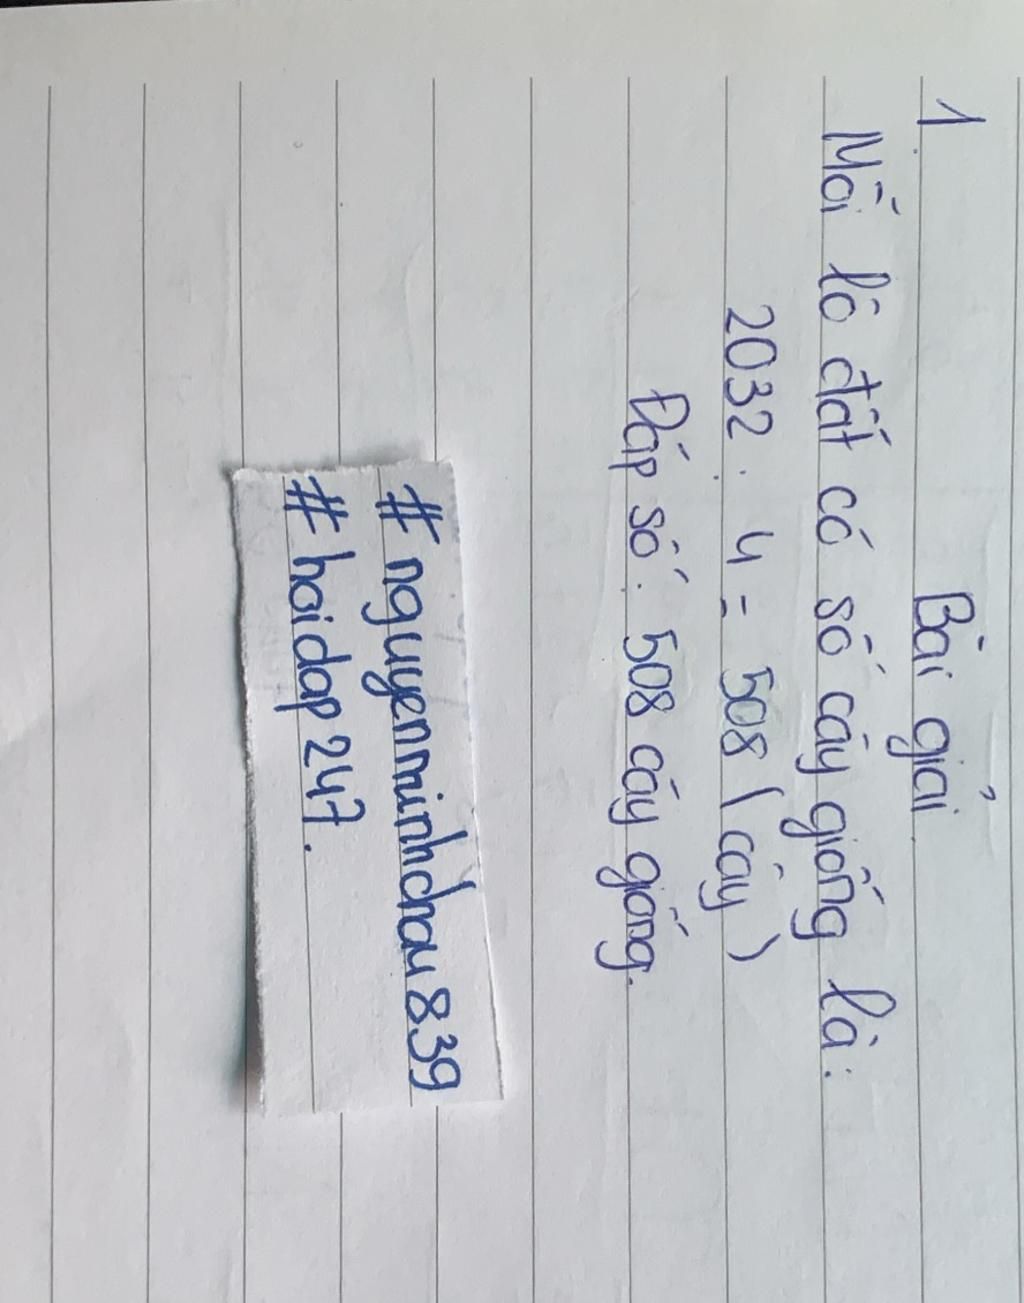 1.
Bài giải
Mỗi lô đất có số cây giống là:
2032 : 4 = 508 (cây)
Đáp số: 508 cây giống.
#nguyenminhchau839
#hoidap247.